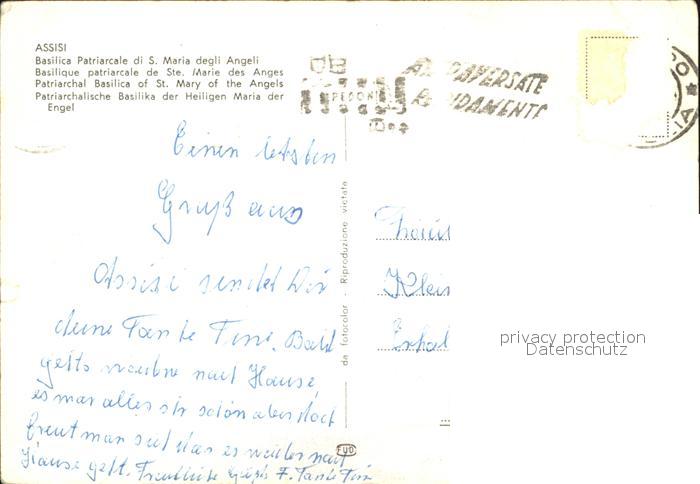 ASSISI
Basilica Patriarcale di S. Maria degli Angeli
Basilique patriarcale de Ste. Marie des Anges
Patriarchal Basilica of St. Mary of the Angels
Patriarchalische Basilika der Heiligen Maria der
Engel
ATTRAVERSATE
PEDONI
Einen letzten
Gruß aus
Assisi sendet Dir
deine Tante Fini. Bald
gehts wieder nach Hause,
es war alles sehr schön aber doch
freut man sich das es wieder nach
Hause geht. Tante Fini
da fotocolor - Riproduzione vietata
Klei
privacy protection
Datenschutz
FUD